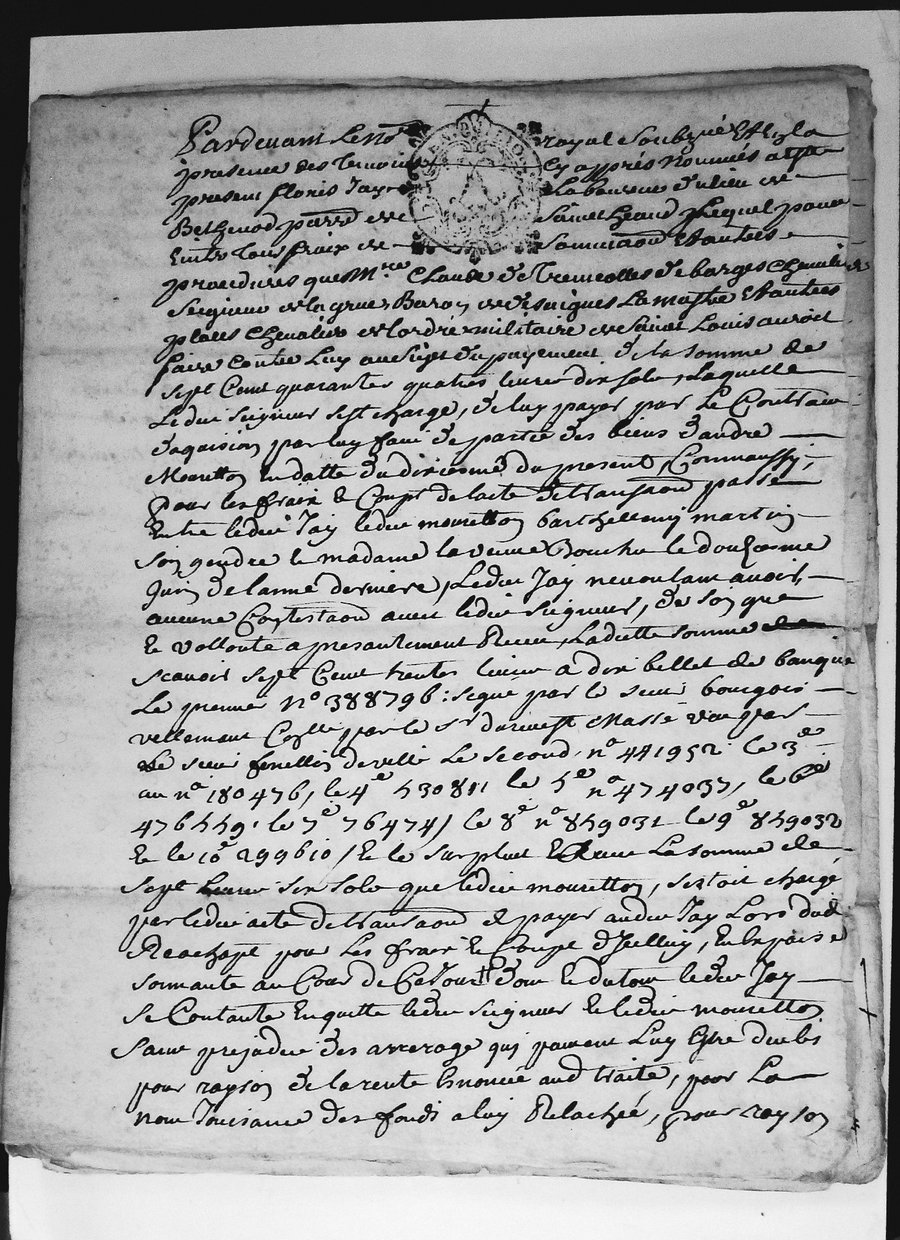 Pardevant le no.re royal soubzné et en la
presence des temoins cy apprés nommés
present floris Jay laboureur du lieu de
Bethenod parr.e de Saint heand lequel pour
Eviter tous fraix de sommaon et autres
procedures que M.re Claude de tremeolles de barges chevalier
Seigneur de la grue Baron de la mastre et autres
places chevalier de lordre militaire de saint Louis auroit
faire contre luy au sujet du payement de la somme de
sept cent quarante quatres livres dix sols, laquelle
ledit seigneur sest chargé, de luy payer par le contract
daquision par luy fait de partie des biens d'andré
Mouretton en datte du dixiesme du present
pour les fraix et coups de lacte de transaon passé
Entre ledit Jay ledit mouretton barthellemy martin
son gendre et madame la veuve le douziesme
Juin de lanné derniere, Ledit Jay ne voulant avoir
aucune contestaon avec ledit seigneur, de son gré
et vollonté a presantement Receu, ladette somme
scavoir sept cent trente livres a dix billet de banque
Le premier n° 388796: signé par le sieur bourgois
le sieur fenellon le second, n° 441952. le 3e
au n° 180476, le 4e 530811 le 5e n° 474037, le 6e
476559. le 7e 76474 / le 8e n° 859031 le 9e 859032
et le 10e 299610 / Et le surplus la somme de
sept livres six sols que ledit mouretton, sestoit chargé
par ledit acte de transaon de payer audit Jay Lors dud.
Reachapt pour les fraix et coups d'Jcelluy, en espaisse
sonnante au cour de ce jour dont et du tout ledit Jay
se contante en quitte ledit seigneur et ledit mouretton
sauf prejudice des arrerage qui peuvent luy estre
pour rayson de la rente Enoncée aud. traité, pour la
non Jouisance des fonds a luy Relachée, pour rayson